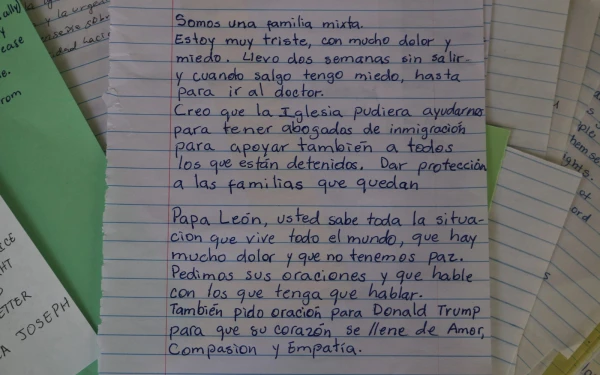 Somos una familia mixta.
Estoy muy triste, con mucho dolor y
miedo. Llevo dos semanas sin salir
y cuando salgo tengo miedo, hasta
para ir al doctor.
Creo que la Iglesia pudiera ayudarnos
para tener abogados de inmigración
para apoyar también a todos
los que están detenidos. Dar protección
a las familias que quedan
Papa León, usted sabe toda la situa-
cion que vive todo el mundo, que hay
mucho dolor y que no tenemos paz.
Pedimos sus oraciones y que hable
con los que tenga que hablar.
También pido oración para Donald Trump
para que su corazón se llene de Amor,
Compasion y Empatía.
case
rom
ICE
HT
ETTER
A JOSEPH
ord